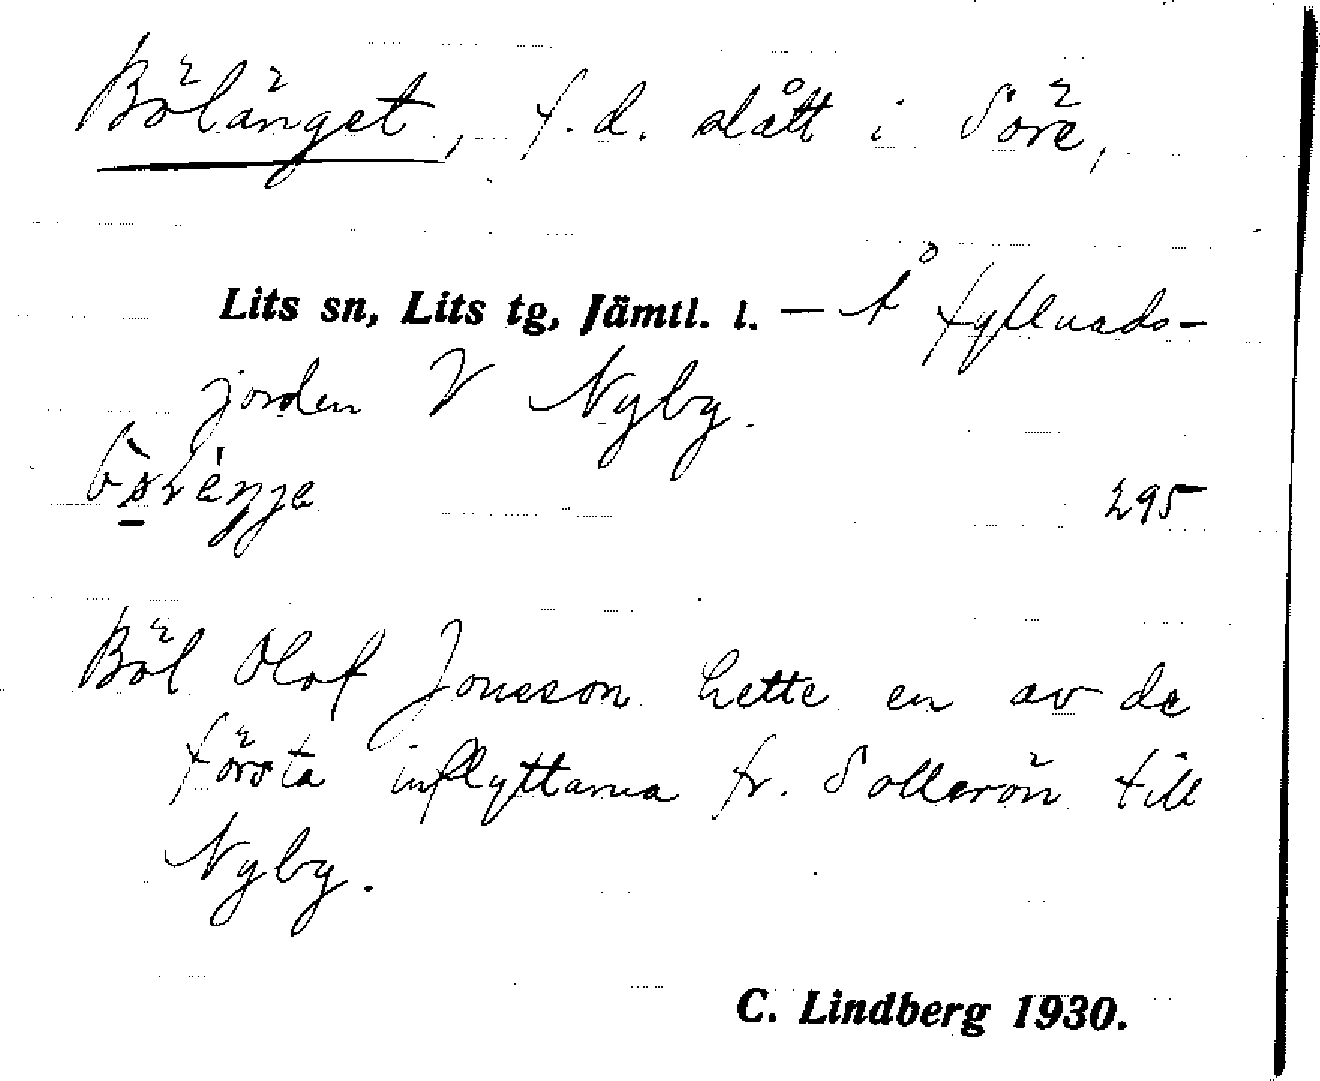 Bölänget, f.d. slått i Söre,
Lits sn, Lits tg, Jämtl. l. — Å fyllnads-
jorden V Nyby.
295
Böl Olof Jonsson hette en av de
första inflyttarna fr. Sollerön till
Nyby.
C. Lindberg 1930.